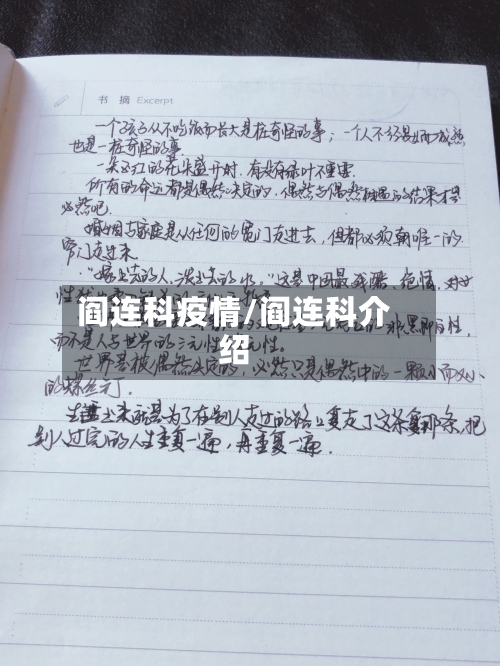 书 摘 Excerpt
一个孩子从不吃饭而长大是桩奇怪的事；一个人不经易 而成熟
也是一桩奇怪的事
一朵又红的花朵盛开时，有没有绿叶不重要
所有的命运都是偶然决定的，偶然与偶然 的结果才是
必然吧
婚姻与家庭是从任何的宽门走进去，但都必须朝唯一的
窄门走过来
"嫁出去的人，泼出去的水。"这是中国最残酷、绝情、对女
阎连科疫情/阎连科介
绍
非黑即白性，
而不是人与世界的三元性 性。
世界是被偶然决定的，必然只是偶然中的一颗小而又小
的螺丝丁。
生 出来 是为了在别人走过的路上复走了这条复那条，把
别人过完的人生重复一遍，再重复一遍。